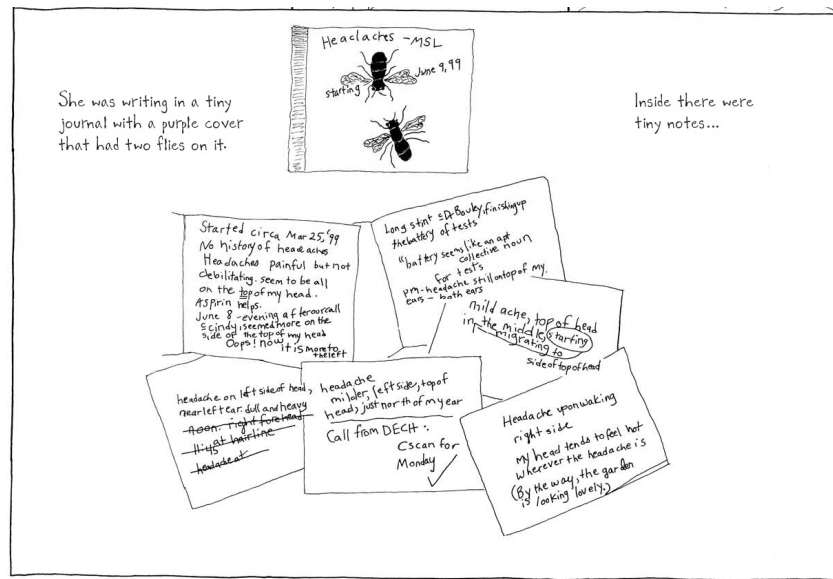 She was writing in a tiny
journal with a purple cover
that had two flies on it.
Headaches -MSL
June 9, 99
starting
Inside there were
tiny notes...
Started circa Mar 25, '99
No history of headaches
Headaches painful but not
debilitating. seem to be all
on the top of my head.
Aspirin helps.
June 8 - evening after our call
c̄ cindy, seemed more on the
side of the top of my head
Oops! now it is more to
the left
Long stint c̄ Dr Bouley, finishing up
the battery of tests
"battery seems like an apt
collective noun
for tests
pm - headache still on top of my
ears - both ears
mild ache, top of head
in the middle, starting
migrating to
side of top of head
headache on left side of head,
near left ear. dull and heavy
noon. right forehead
at hairline
11:45
headache at
headache
milder, left side, top of
head, just north of my ear
Call from DECH:
Cscan for
Monday
Headache upon waking
right side
my head tends to feel hot
wherever the headache is
(By the way, the garden
is looking lovely.)